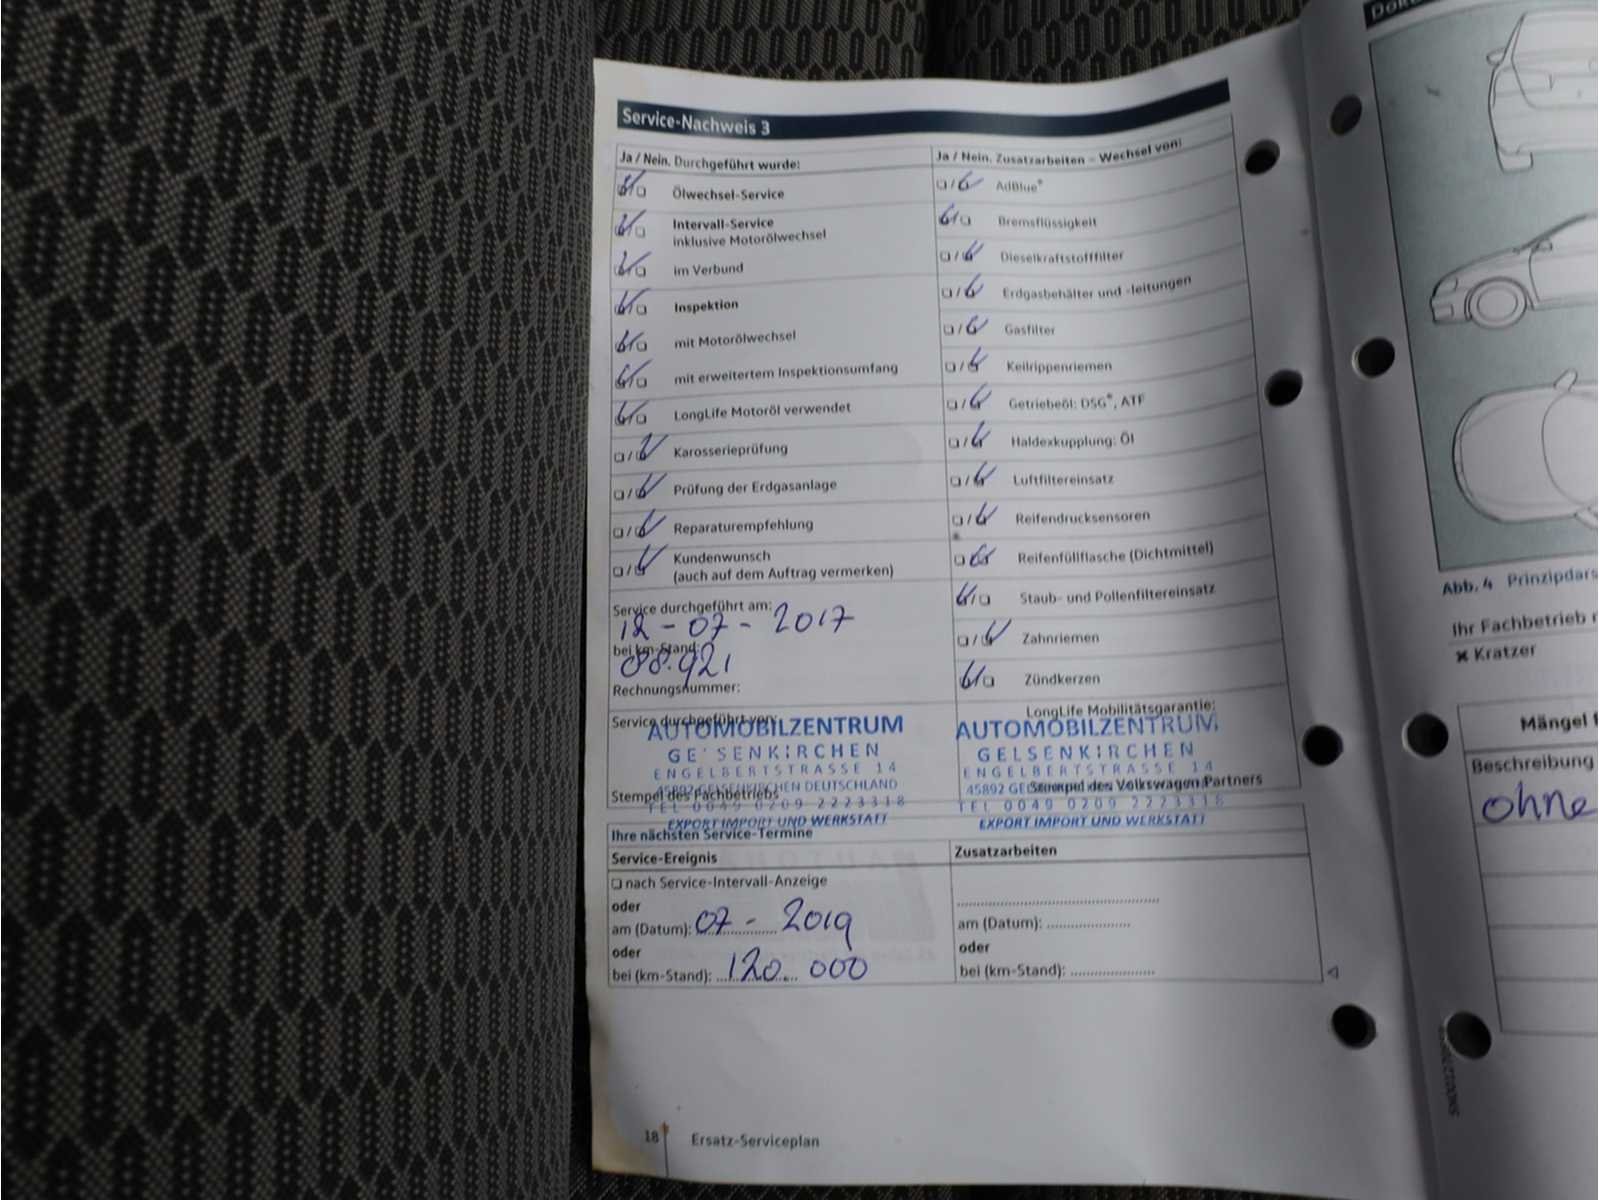 Service-Nachweis 3
Ja / Nein. Durchgeführt wurde:
Ölwechsel-Service
Intervall-Service
inklusive Motorölwechsel
im Verbund
Inspektion
mit Motorölwechsel
mit erweitertem Inspektionsumfang
LongLife Motoröl verwendet
Karosserieprüfung
Prüfung der Erdgasanlage
Reparaturempfehlung
Kundenwunsch
(auch auf dem Auftrag vermerken)
Service durchgeführt am:
12-07-2017
bei km-Stand:
88.921
Rechnungsnummer:
Service durchgeführt von:
AUTOMOBILZENTRUM
GELSENKIRCHEN
ENGELBERTSTRASSE 14
45892 GELSENKIRCHEN DEUTSCHLAND
Stempel des Fachbetriebs
TEL 0049 0209 2223318
EXPORT IMPORT UND WERKSTATT
Ja / Nein. Zusatzarbeiten – Wechsel von:
AdBlue®
Bremsflüssigkeit
Dieselkraftstofffilter
Erdgasbehälter und -leitungen
Gasfilter
Keilrippenriemen
Getriebeöl: DSG®, ATF
Haldexkupplung: Öl
Luftfiltereinsatz
Reifendrucksensoren
Reifenfüllflasche (Dichtmittel)
Staub- und Pollenfiltereinsatz
Zahnriemen
Zündkerzen
LongLife Mobilitätsgarantie:
AUTOMOBILZENTRUM
GELSENKIRCHEN
ENGELBERTSTRASSE 14
45892
Stempel des Volkswagen Partners
TEL 0049 0209 2223318
EXPORT IMPORT UND WERKSTATT
Ihre nächsten Service-Termine
Service-Ereignis
nach Service-Intervall-Anzeige
oder
am (Datum): 07-2019
oder
bei (km-Stand): 120.000
Zusatzarbeiten
am (Datum):
oder
bei (km-Stand):
18
Ersatz-Serviceplan
Abb. 4
Ihr Fachbetrieb
✖ Kratzer
Mängel
Beschreibung
ohne